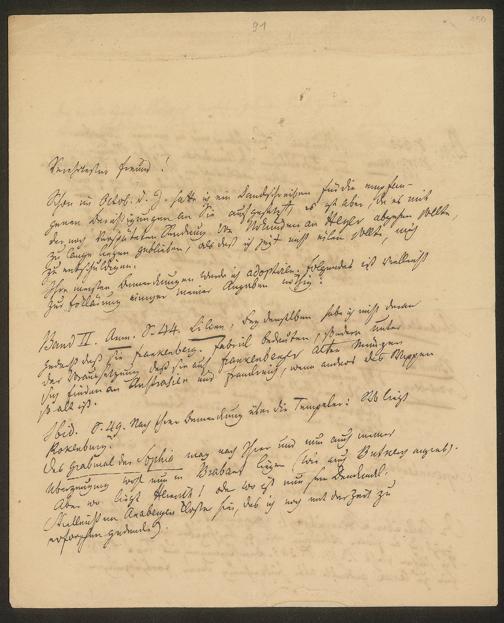 91
Verehrtester Freund!
Schon im Octob. d. J. hatte ich ein Dankschreiben für die empfan-
genen Berichtigungen an Sie aufgesetzt, es ist aber, da es mit
der nun Sendung der Urkunden an abgehen sollte,
zu lange liegen geblieben, als daß ich jetzt nicht eilen sollte, mich
zu entschuldigen.
Ihre meisten Bemerkungen werde ich adoptiren, folgendes ist vielleicht
zur Erklärung einiger meiner Angaben nöthig:
Band II. Anm. S. 44. Lilien, bey denselben habe ich nicht daran
gedacht daß sie frankenberg. Fabrik bedeuten, sondern unter
der Voraussetzung daß sie auf frankenberger alten Münzen
sich finden an und Frankreich, wenn anders das Wappen
so alt ist.
Ibid. S. 49. Nach Ihrer Bemerkung über die Tempeler: Wo liegt
Rokenburg?
Das Grabmal der Sophia mag nach Ihrer und nun auch meiner
Überzeugung wohl nun in Brabant liegen (wie auch angiebt).
Aber wo liegt ! oder wo ist nun ihr Denkmal.
Kloster sein, das ich noch mit der Zeit zu
erforschen gedenke).